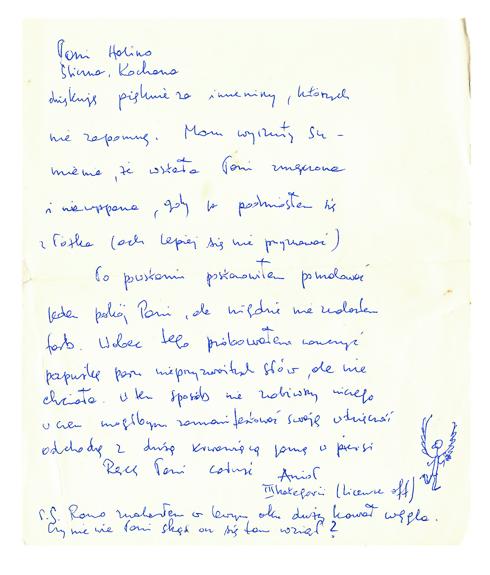 Pani Halino
Śliczna, Kochana
dziękuję pięknie za imieniny, których
nie zapomnę. Mam wyrzuty su-
mienia, że wstała Pani zmęczona
i niewyspana, gdy ja podniosłem się
z łóżka (och lepiej się nie przyznawać)
Po powstaniu postanowiłem pomalować
jeden pokój Pani, ale nigdzie nie znalazłem
farb. Wobec tego próbowałem nauczyć
papużkę paru nieprzyzwoitych słów, ale nie
chciała. W ten sposób nie zrobiwszy niczego
w czem mógłbym zamanifestować swoją wdzięczność
odchodzę z dużą krwawiącą jamą w piersi
Rączki Pani całuję
Anioł
III kategorii (License off)
P.S. Rano znalazłem w lewym oku duży kawał węgla.
Czy nie wie Pani skąd on się tam wziął?